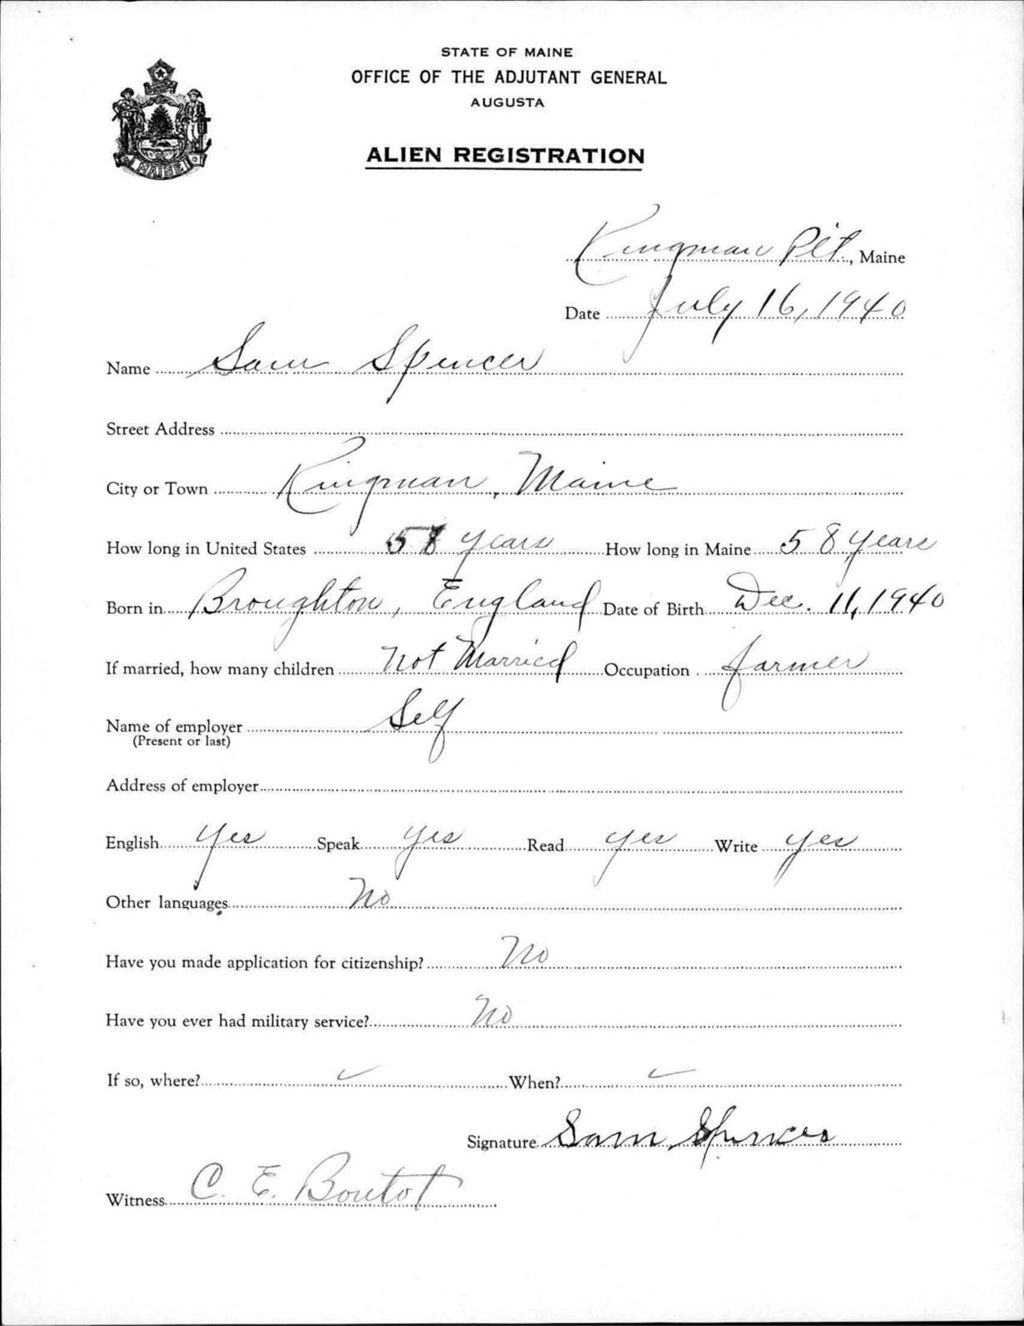 STATE OF MAINE
OFFICE OF THE ADJUTANT GENERAL
AUGUSTA
ALIEN REGISTRATION
MAINE
Kingman Plt., Maine
Date July 16, 1940
Name Sam Spencer
Street Address
City or Town Kingman, Maine
How long in United States 58 years How long in Maine 58 years
Born in Broughton, England Date of Birth Dec. 11, 1940
If married, how many children Not Married Occupation farmer
Name of employer Self
(Present or last)
Address of employer
English Yes Speak yes Read yes Write yes
Other languages No
Have you made application for citizenship? No
Have you ever had military service? No
If so, where? ✓ When? ✓
Signature Sam Spencer
Witness C. E. Boutot